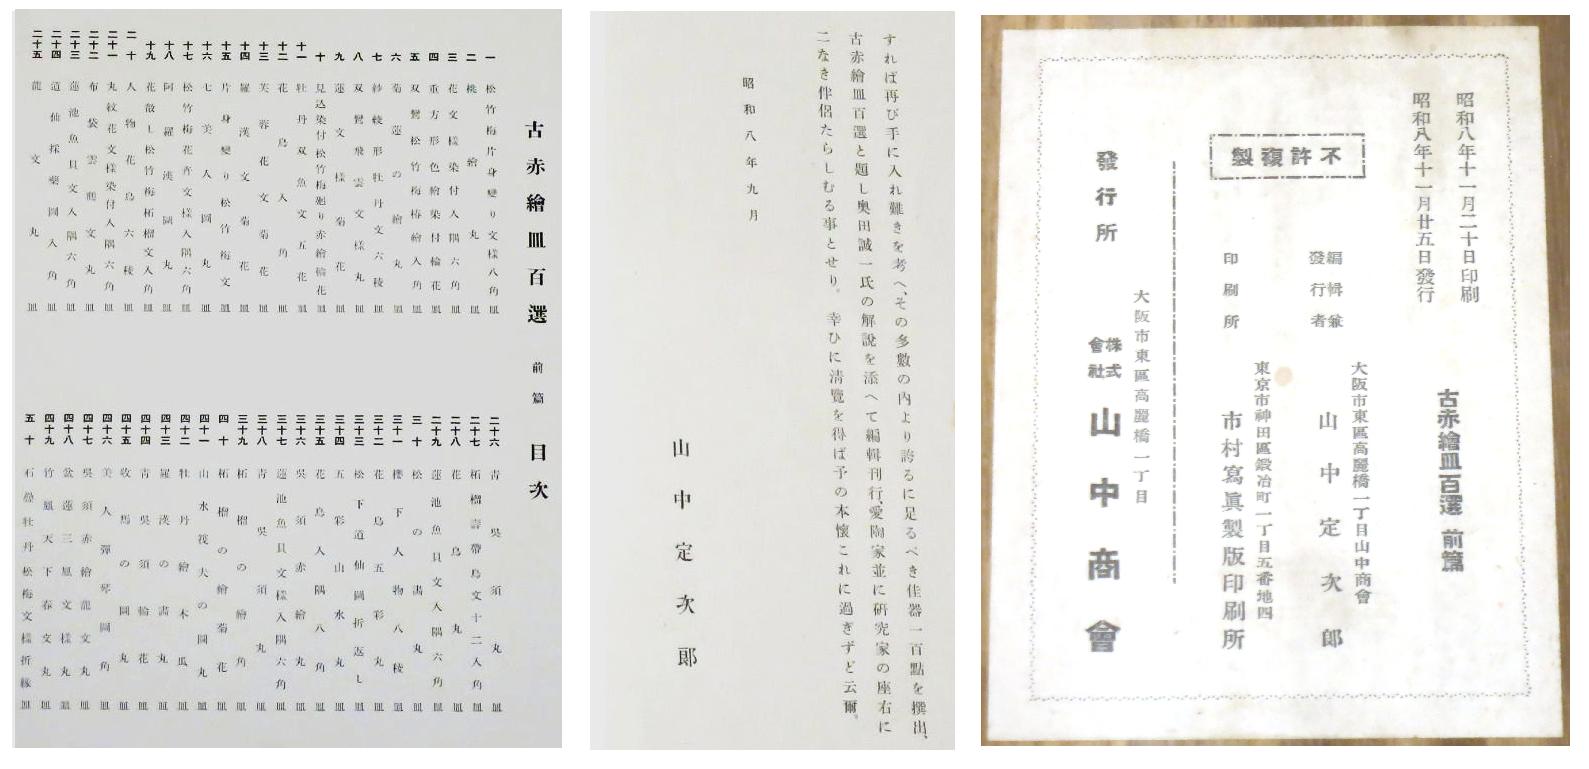 古赤繪皿百選 前篇 目次
一 松竹梅片身變り文樣八角皿
二 桃繪丸皿
三 花文樣染付入隅六角皿
四 重方形色繪染付輪花皿
五 双鸞松竹梅椿繪八角皿
六 菊蓮の繪丸皿
七 紗綾形牡丹文六稜皿
八 双鸞飛雲文樣丸皿
九 蓮文樣菊花皿
十 見込染付松竹梅廻り赤繪輪花皿
十一 牡丹双魚文五花皿
十二 花鳥入角皿
十三 芙蓉花文菊花皿
十四 羅漢文菊花皿
十五 片身變り松竹梅文皿
十六 七美人圖丸皿
十七 松竹梅花卉文樣入隅六角皿
十八 阿羅漢圖丸皿
十九 花散し松竹梅柘榴文八角皿
二十 人物花鳥六稜皿
二十一 丸紋花文樣染付入隅六角皿
二十二 布袋雲鶴文丸皿
二十三 蓮池魚貝文入隅六角皿
二十四 道仙採藥圖八角皿
二十五 龍文丸皿
二十六 靑呉須丸皿
二十七 柘榴壽帶鳥文十二角皿
二十八 花鳥丸皿
二十九 蓮池魚貝文入隅六角皿
三十 松の畵丸皿
三十一 樓下人物八稜皿
三十二 花鳥五彩丸皿
三十三 松下道仙圖折返し皿
三十四 五彩山水丸皿
三十五 花鳥入隅八角皿
三十六 呉須赤繪丸皿
三十七 蓮池魚貝文樣入隅六角皿
三十八 靑呉須丸皿
三十九 柘榴の繪角皿
四十 柘榴の繪菊花皿
四十一 山水筏夫の圖丸皿
四十二 牡丹繪木瓜皿
四十三 羅漢の畵丸皿
四十四 靑呉須輪花皿
四十五 牧馬の圖丸皿
四十六 美人彈琴圖角皿
四十七 呉須赤繪龍文丸皿
四十八 盆蓮三凰文樣丸皿
四十九 竹鳳天下春文丸皿
五十 石疊牡丹松梅文樣折緣皿
すれば再び手に入れ難きを考へ、その多數の内より誇るに足るべき佳器一百點を撰出、
古赤繪皿百選と題し奥田誠一氏の解說を添へて編輯刊行、愛陶家並に硏究家の座右に
二なき伴侶たらしむる事とせり。幸ひに淸覽を得ば予の本懷これに過ぎずと云爾。
昭和八年九月
山中定次郞
昭和八年十一月二十日印刷
昭和八年十一月廿五日發行
古赤繪皿百選 前篇
不許複製
大阪市東區高麗橋一丁目山中商會
編輯兼
發行者
山中定次郞
東京市神田區鍛冶町一丁目五番地四
印刷所
市村寫眞製版印刷所
大阪市東區高麗橋一丁目
發行所
株式
會社
山中商會